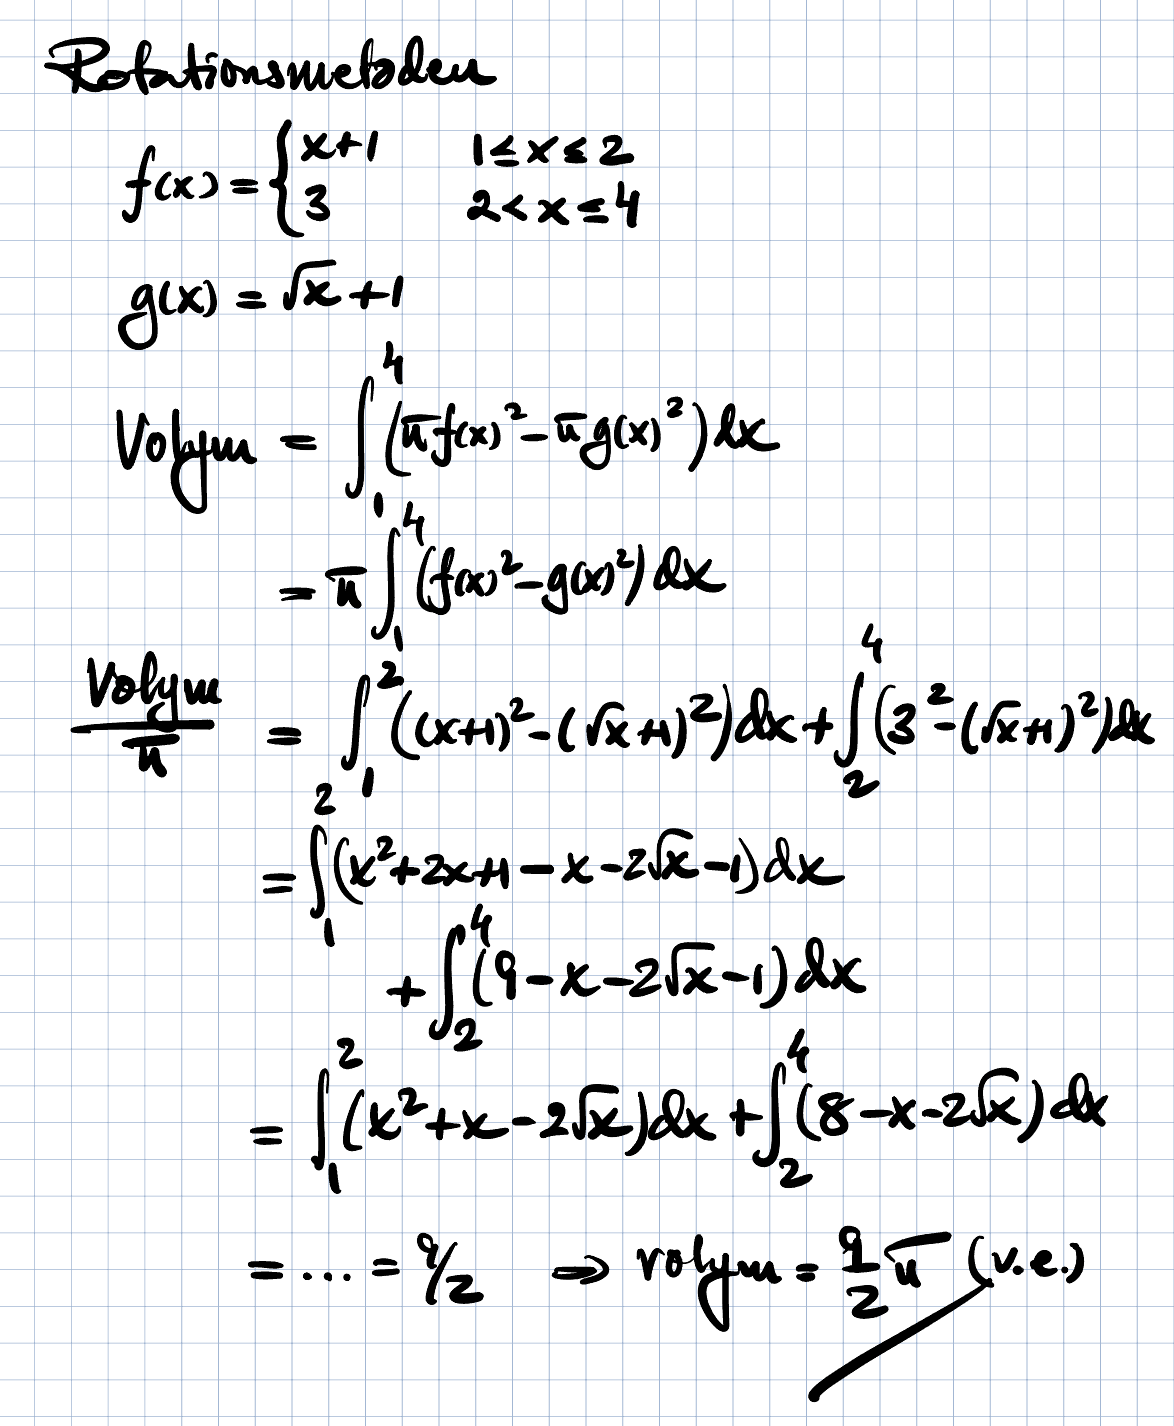 Rotationsmetoden
f(x) = { x+1   1 ≤ x ≤ 2
3   2 < x ≤ 4
g(x) = √x + 1
Volym = ∫₁⁴ (π f(x)² − π g(x)²) dx
= π ∫₁⁴ (f(x)² − g(x)²) dx
Volym/π = ∫₁² ((x+1)² − (√x+1)²) dx + ∫₂⁴ (3² − (√x+1)²) dx
= ∫₁² (x² + 2x + 1 − x − 2√x − 1) dx
+ ∫₂⁴ (9 − x − 2√x − 1) dx
= ∫₁² (x² + x − 2√x) dx + ∫₂⁴ (8 − x − 2√x) dx
= ... = 9/2 ⇒ volym = 9/2 π (v.e.)